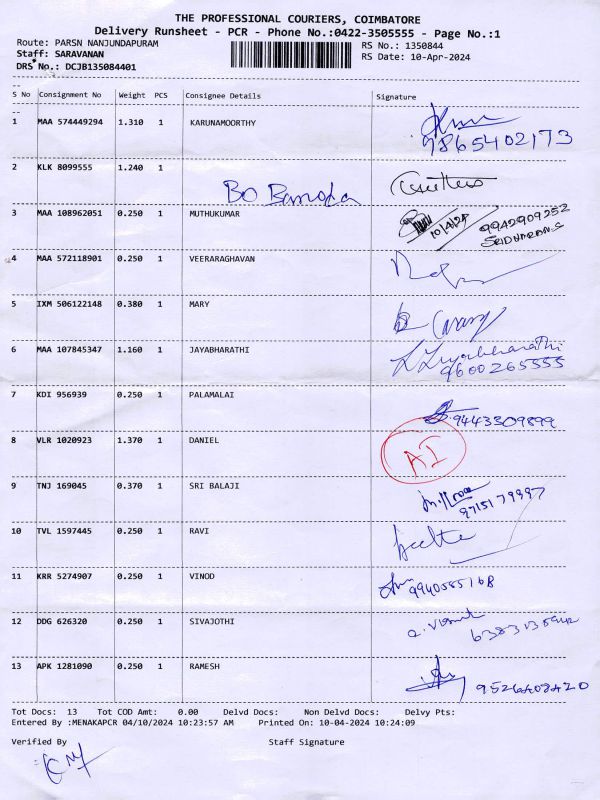 THE PROFESSIONAL COURIERS, COIMBATORE
Delivery Runsheet - PCR - Phone No.:0422-3505555 - Page No.:1
Route: PARSN NANJUNDAPURAM
RS No.: 1350844
Staff: SARAVANAN
RS Date: 10-Apr-2024
DRS No.: DCJB135084401
S No Consignment No Weight PCS Consignee Details Signature
1 MAA 574449294 1.310 1 KARUNAMOORTHY
9865402173
2 KLK 8099555 1.240 1
BO
3 MAA 108962051 0.250 1 MUTHUKUMAR
10/4/24 9942909252
SRIDHARAN.G
4 MAA 572118901 0.250 1 VEERARAGHAVAN
5 IXM 506122148 0.380 1 MARY
6 MAA 107845347 1.160 1 JAYABHARATHI
9600265555
7 KDI 956939 0.250 1 PALAMALAI
9443309899
8 VLR 1020923 1.370 1 DANIEL
AI
9 TNJ 169045 0.370 1 SRI BALAJI
9715179997
10 TVL 1597445 0.250 1 RAVI
11 KRR 5274907 0.250 1 VINOD
9940585168
12 DDG 626320 0.250 1 SIVAJOTHI
13 APK 1281090 0.250 1 RAMESH
9526408420
Tot Docs: 13 Tot COD Amt: 0.00 Delvd Docs: Non Delvd Docs: Delvy Pts:
Entered By :MENAKAPCR 04/10/2024 10:23:57 AM Printed On: 10-04-2024 10:24:09
Verified By Staff Signature